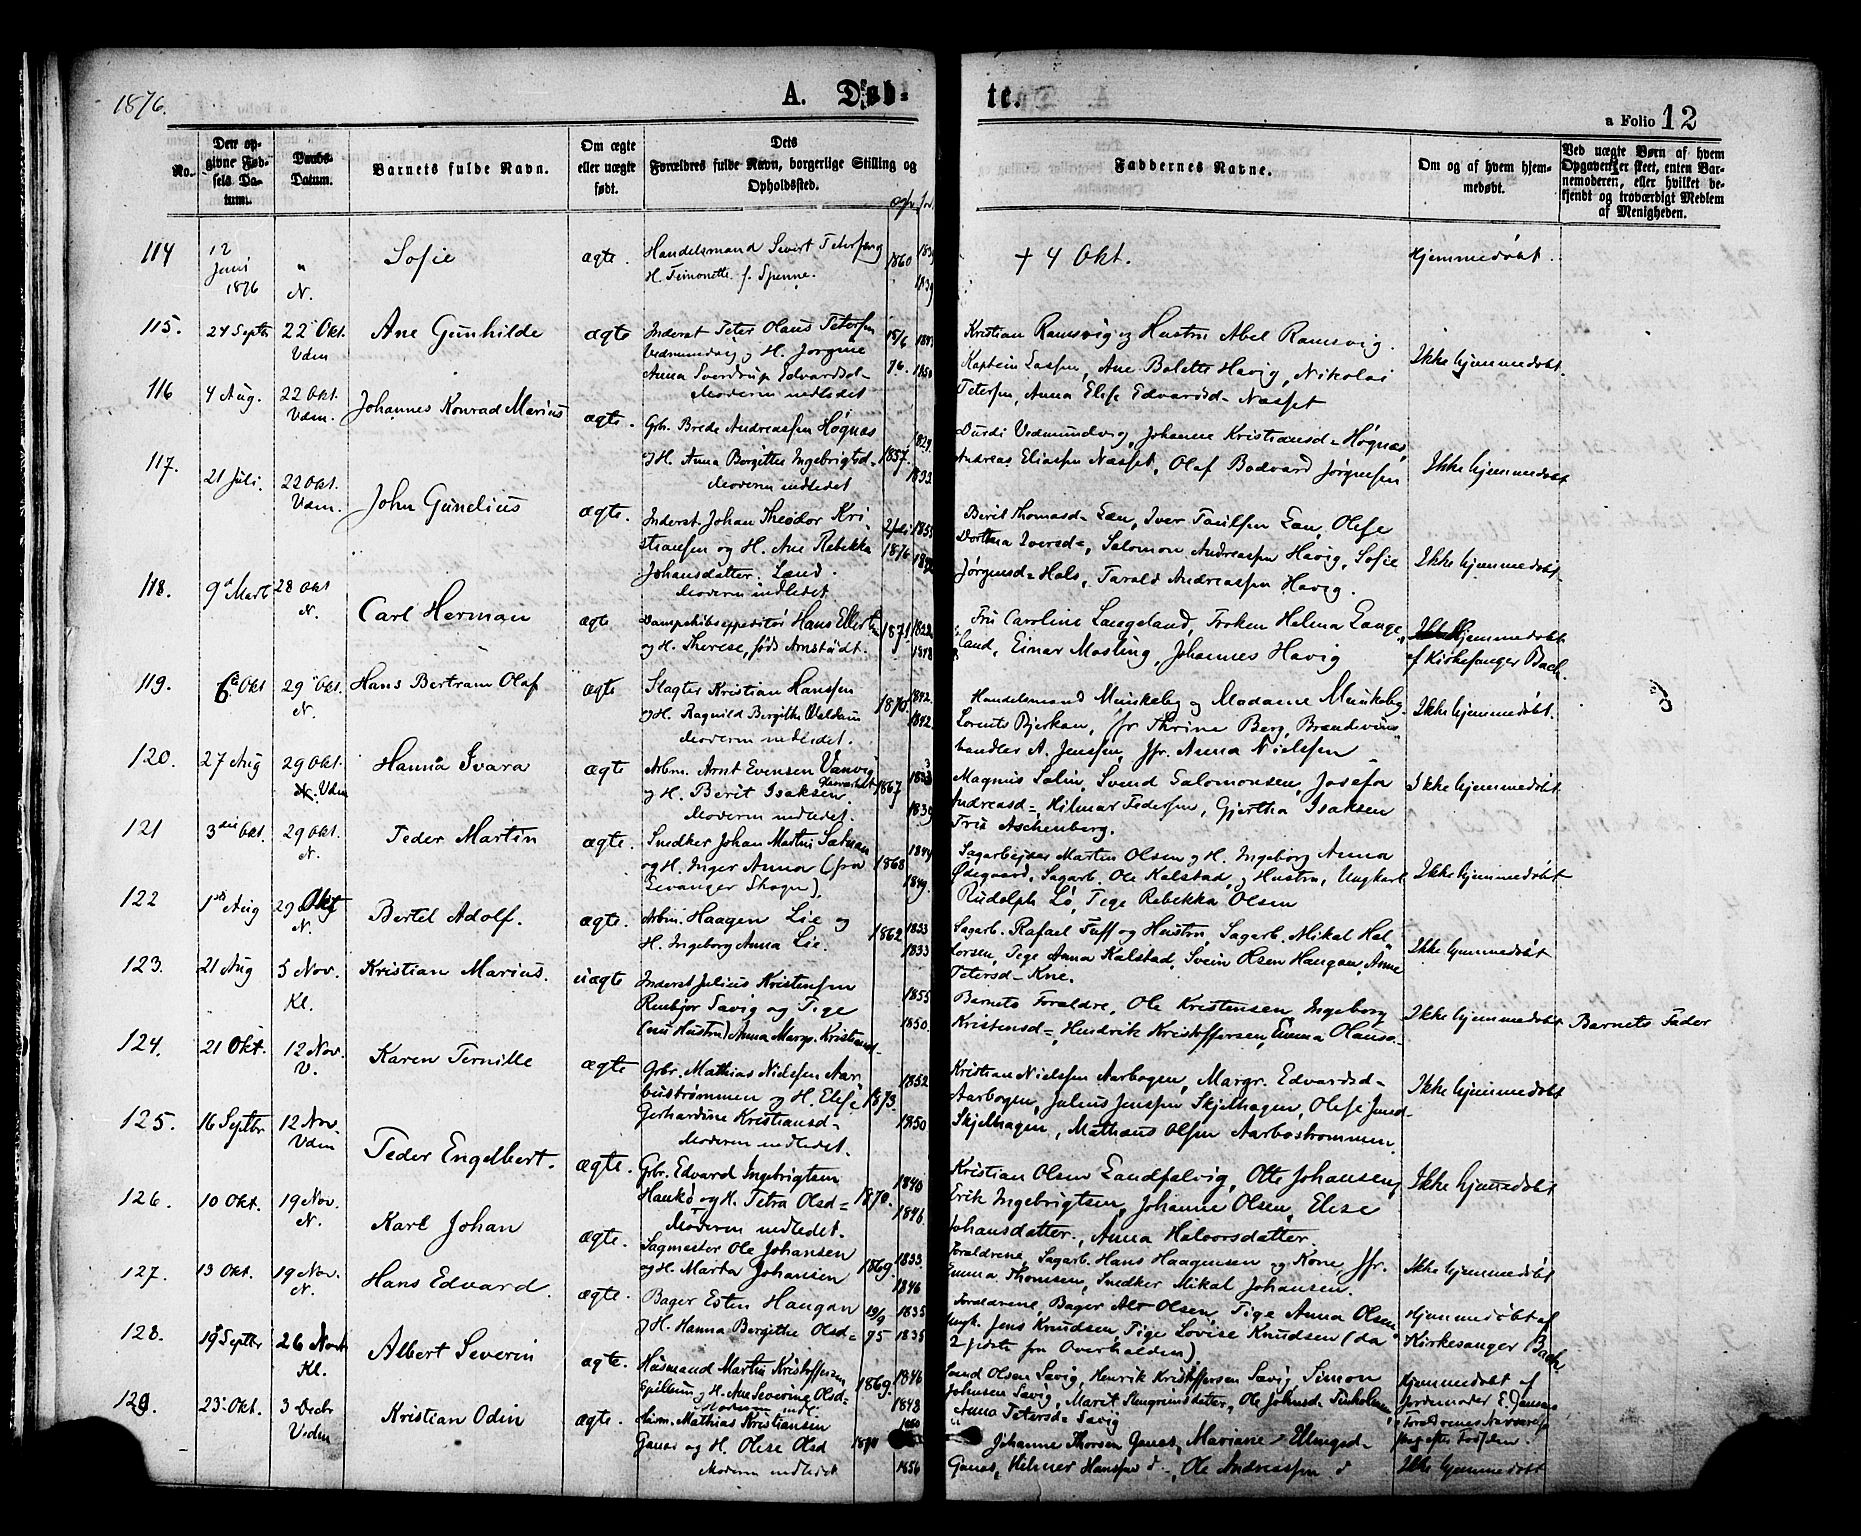 1876.
A. Døb-
te.
a Folio 12
No.
Den op-
givne Fød-
sels Da-
tum.
Daabs-
Datum.
Barnets fulde Navn.
Om ægte
eller uægte
født.
Dets
Forældres fulde Navn, borgerlige Stilling og
Opholdssted.
Faddernes Navne.
Om og af hvem hjem-
medøbt.
Ved uægte Børn af hvem
Opgaven er skeet, enten Bar-
nemoderen, eller hvilket be-
kjendt og troværdigt Medlem
af Menigheden.
114
12
Juni
1876
"
N.
Sofie
ægte.
Handelsmand Sivert Petersen
H. Simonette f. Spenne.
1860
1839
+ 4 Okt.
Hjemmedøbt.
115.
24 Septbr
22 Okt.
Vdm
Ane Gunhilde
ægte
Inderst Peter Olaus Petersen
Vedmundvig og H. Jørgine
Anna Sverdrup Edvardsd.
Moderen indledet
15/6
76.
1850
Kristian Ramsvig og Hustru Abel Ramsvig.
Kaptein Lassen, Ane Bolette Havig, Nikolai
Petersen, Anna Elise Edvardsd= Næsset
Ikke hjemmedøbt.
116
4 Aug.
22 Okt.
Vdm.
Johannes Konrad Marius
ægte.
Grb. Brede Andreassen Høgnæs
og H. Anna Bergitte Ingebrigtsd=
Moderen indledet
1857.
1829.
1833
Durdi Vedmundvig, Johanne Kristiansd= Høgnæs,
Andreas Eliassen Næsset, Olaf Bodvard Jørgensen
Ikke hjemmedøbt
117.
21 Juli.
22 Okt.
Vdm.
John Gunelius
ægte.
Inderst Johan Theodor Kri-
stiansen og H. Ane Rebekka
Johansdatter. Lund.
Moderen indledet
1876
1855
Berit Thomasd= Løn, Iver Paulsen Løn, Olise
Dorthea Iversd=, Salomon Andreassen Havig, Sofie
Jørgensd= Hals, Tarald Andreassen Havig.
Ikke hjemmedøbt.
118.
9 Marts
28 Okt
N.
Carl Herman
ægte
Dampskibsexpeditør Hans Ellertsen
og H. Therese, født Arnstadt.
1871.
1848
Fru Caroline Langeland, Frøken Helena Lange-
land, Einar Mosling, Johannes Havig
Hjemmedøbt
af Kirkesanger Bach.
119.
6 Okt
29 Okt.
N.
Hans Bertram Olaf
ægte
Slagter Kristian Hanssen
og H. Ragnild Bergithe Waldum
Moderen indledet.
1870.
1842.
1842.
Handelsmand Munkeby og Madame Munkeby.
Lorents Bjerkan, Jfr Thrine Berg, Brændeviins-
handler A. Jenssen, Jfr. Anna Nielsen
Ikke hjemmedøbt.
120.
27 Aug
29 Okt.
Vdm
Hanna Svara
ægte
Arbm. Arnt Evensen Vanvig
og H. Berit Isaksen.
Moderen indledet.
1867
1839
Magnus Salin, Svend Salomonsen, Josefa
Andreasd=, Hilmar Pedersen, Gjertha Isaksen
Fru Aschenberg.
Ikke hjemmedøbt.
121
3die Okt.
29 Okt.
N.
Peder Martin
ægte.
Snedker Johan Martin Sætnan
og H. Inger Anna (fra
Levanger Skogn)
1868
1844
1849.
Sagarbejder Marten Olsen og H. Ingeborg Anna
Ødegaard, Sagarb. Ole Kalstad, og Hustru, Ungkarl
Rudolph Lø, Pige Rebekka Olsen
Ikke hjemmedøbt
122
1ste Aug
29 Okt
N.
Bertel Adolf.
ægte.
Arbm. Haagen Lie og
H. Ingeborg Anna Lie.
1862
1833
1833
Sagarb. Rafael Fuff og Hustru, Sagarb. Mikal Hal-
lorsen, Pige Anna Kalstad, Svein Olsen Haugan, Anne
Petersd= Kne.
Ikke hjemmedøbt
123.
21 Aug
5 Nov.
Kl.
Kristian Marius.
uægte
Inderst Julius Kristensen
Rembjør Savig og Pige
(nu Hustru) Anna Margr. Kristiansd=
1855
1850.
Barnets Forældre, Ole Kristensen, Ingeborg
Kristensd=, Hendrik Kristoffersen, Emma Olausd.
Ikke hjemmedøbt
Barnets Fader
124.
21 Okt.
12 Nov.
V.
Karen Pernille
ægte
Grbr. Mathias Nielsen Aar-
bustrømmen og H. Elise
Gerhardine Kristiansd=
Moderen indledet.
1873.
1852
1850
Kristian Nielsen Aarbogen, Margr. Edvardsd=
Aarbogen, Julius Jenssen Skjelhagen, Olise Jensd=
Skjelhagen, Mathæus Olsen Aarbostrømmen.
Ikke hjemmedøbt
125.
16 Septbr
12 Nov.
Vdm
Peder Engelbert.
ægte.
Grb. Edvard Ingebrigtsen
Haukø og H. Petra Olsd=
Moderen indledet.
1870.
1840
1846.
Kristian Olsen Landfalvig, Otte Johansen,
Erik Ingebrigtsen, Johanne Olsen, Elise
Johansdatter, Anna Halvorsdatter.
Ikke hjemmedøbt
126.
10 Okt.
19 Nov.
N.
Karl Johan
ægte.
Sagmester Ole Johansen
og H. Marta Johansen
1869.
1833.
1846
Forældrene, Sagarb. Hans Haagensen og Kone Jfr.
Emma Thomsen, Snedker Mikal Johansen.
Ikke hjemmedøbt
127.
13 Okt.
19 Nov.
N.
Hans Edvard.
ægte.
Bager Esten Haugan
og H. Hanna Bergithe Olsd=
19/9
75
1835
1835
Forældrene, Bager Alt Olsen, Pige Anna Olsen
Ungk. Jens Knudsen, Pige Lovise Knudsen (da
2 sidste fra Overhalden)
Hjemmedøbt af
Kirkesanger Bach
128.
19 Septbr
26 Novbr
Kl.
Albert Severin
ægte.
Husmand Martin Kristoffersen
Spillum og H. Ane Severine Olsd=
Moderen indl.
1869.
1846
1848
Lund Olsen Savig, Henrik Kristoffersen Savig Simon
Johnsen Savig, Marit Stengrimsdatter, Ole Johnsd=
Anna Petersd= Savig
Hjemmedøbt af
Jordemoder E. Jensen
i Forældrenes Nærværelse
strax efter Fødselen.
129.
23 Okt.
3 Decbr
Vdm
Kristian Odin
ægte.
Mathias Kristiansen
Ganæs og H. Olise Olsd
Moderen indledet
1856
Johanne Thorsen Ganæs, Mariane Ellingsd=
Ganæs, Helmer Hanssen d=, Ole Andreassen d
Ikke hjemmedøbt